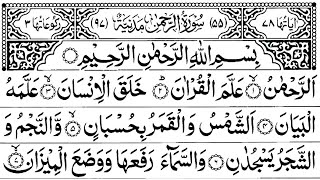 اٰیَاتُهَا ٧٨ (٥٥) سُوْرَةُ الرَّحْمٰنِ مَدَنِیَّةٌ (٩٧) رُكُوْعَاتُهَا ٣
بِسْمِ اللّٰهِ الرَّحْمٰنِ الرَّحِیْمِ
اَلرَّحْمٰنُ ۝١ عَلَّمَ الْقُرْاٰنَ ۝٢ خَلَقَ الْاِنْسَانَ ۝٣ عَلَّمَهُ
الْبَیَانَ ۝٤ اَلشَّمْسُ وَالْقَمَرُ بِحُسْبَانٍ ۝٥ وَّالنَّجْمُ وَ
الشَّجَرُ یَسْجُدٰنِ ۝٦ وَالسَّمَآءَ رَفَعَهَا وَوَضَعَ الْمِیْزَانَ ۝٧